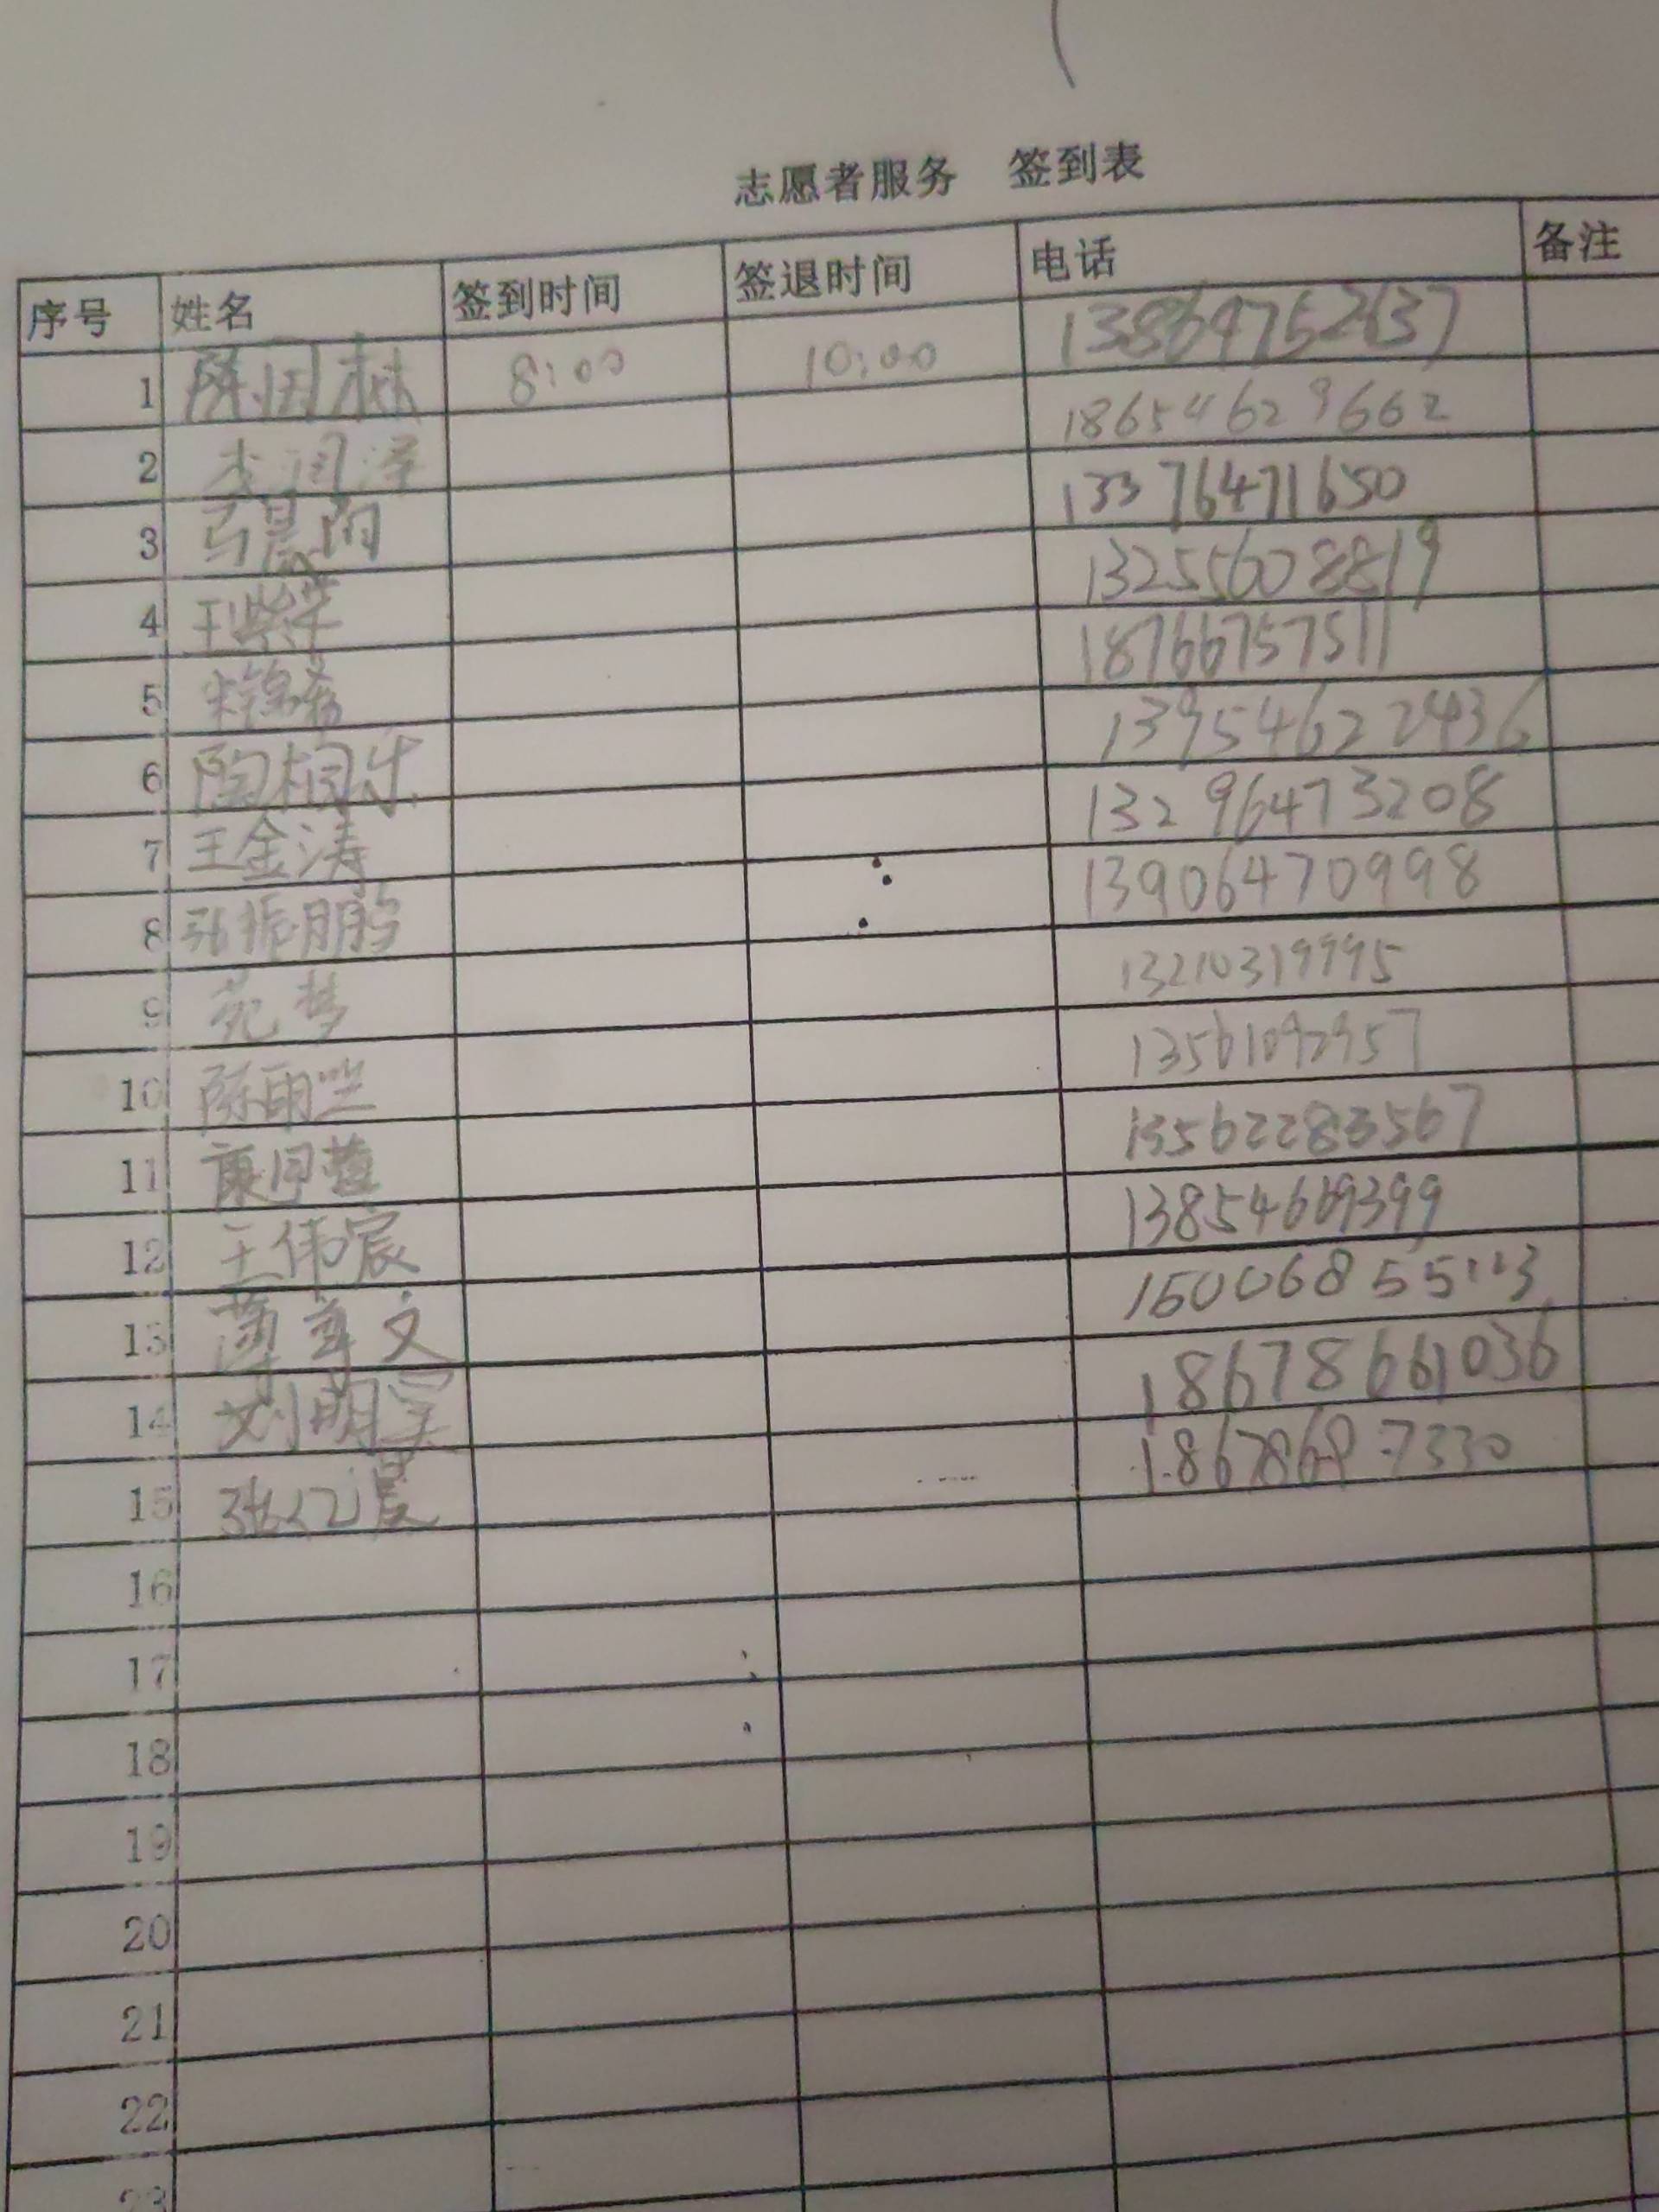 志愿者服务 签到表
序号 姓名 签到时间 签退时间 电话 备注
1 8:00 10:00 13864752637
2 李润泽 18654629662
3 马晨阳 13376471650
4 13255608819
5 宋锦希 18766757511
6 陶桐乐 13954622436
7 王金涛 13296473208
8 张振鹏 13906470998
9 苑梦 13210319995
10 陈雨竺 13561092957
11 13562283567
12 王伟宸 13854669399
13 文
14 刘明昊 18678661036
15 张亿晨 18678687330
16
17
18
19
20
21
22
23